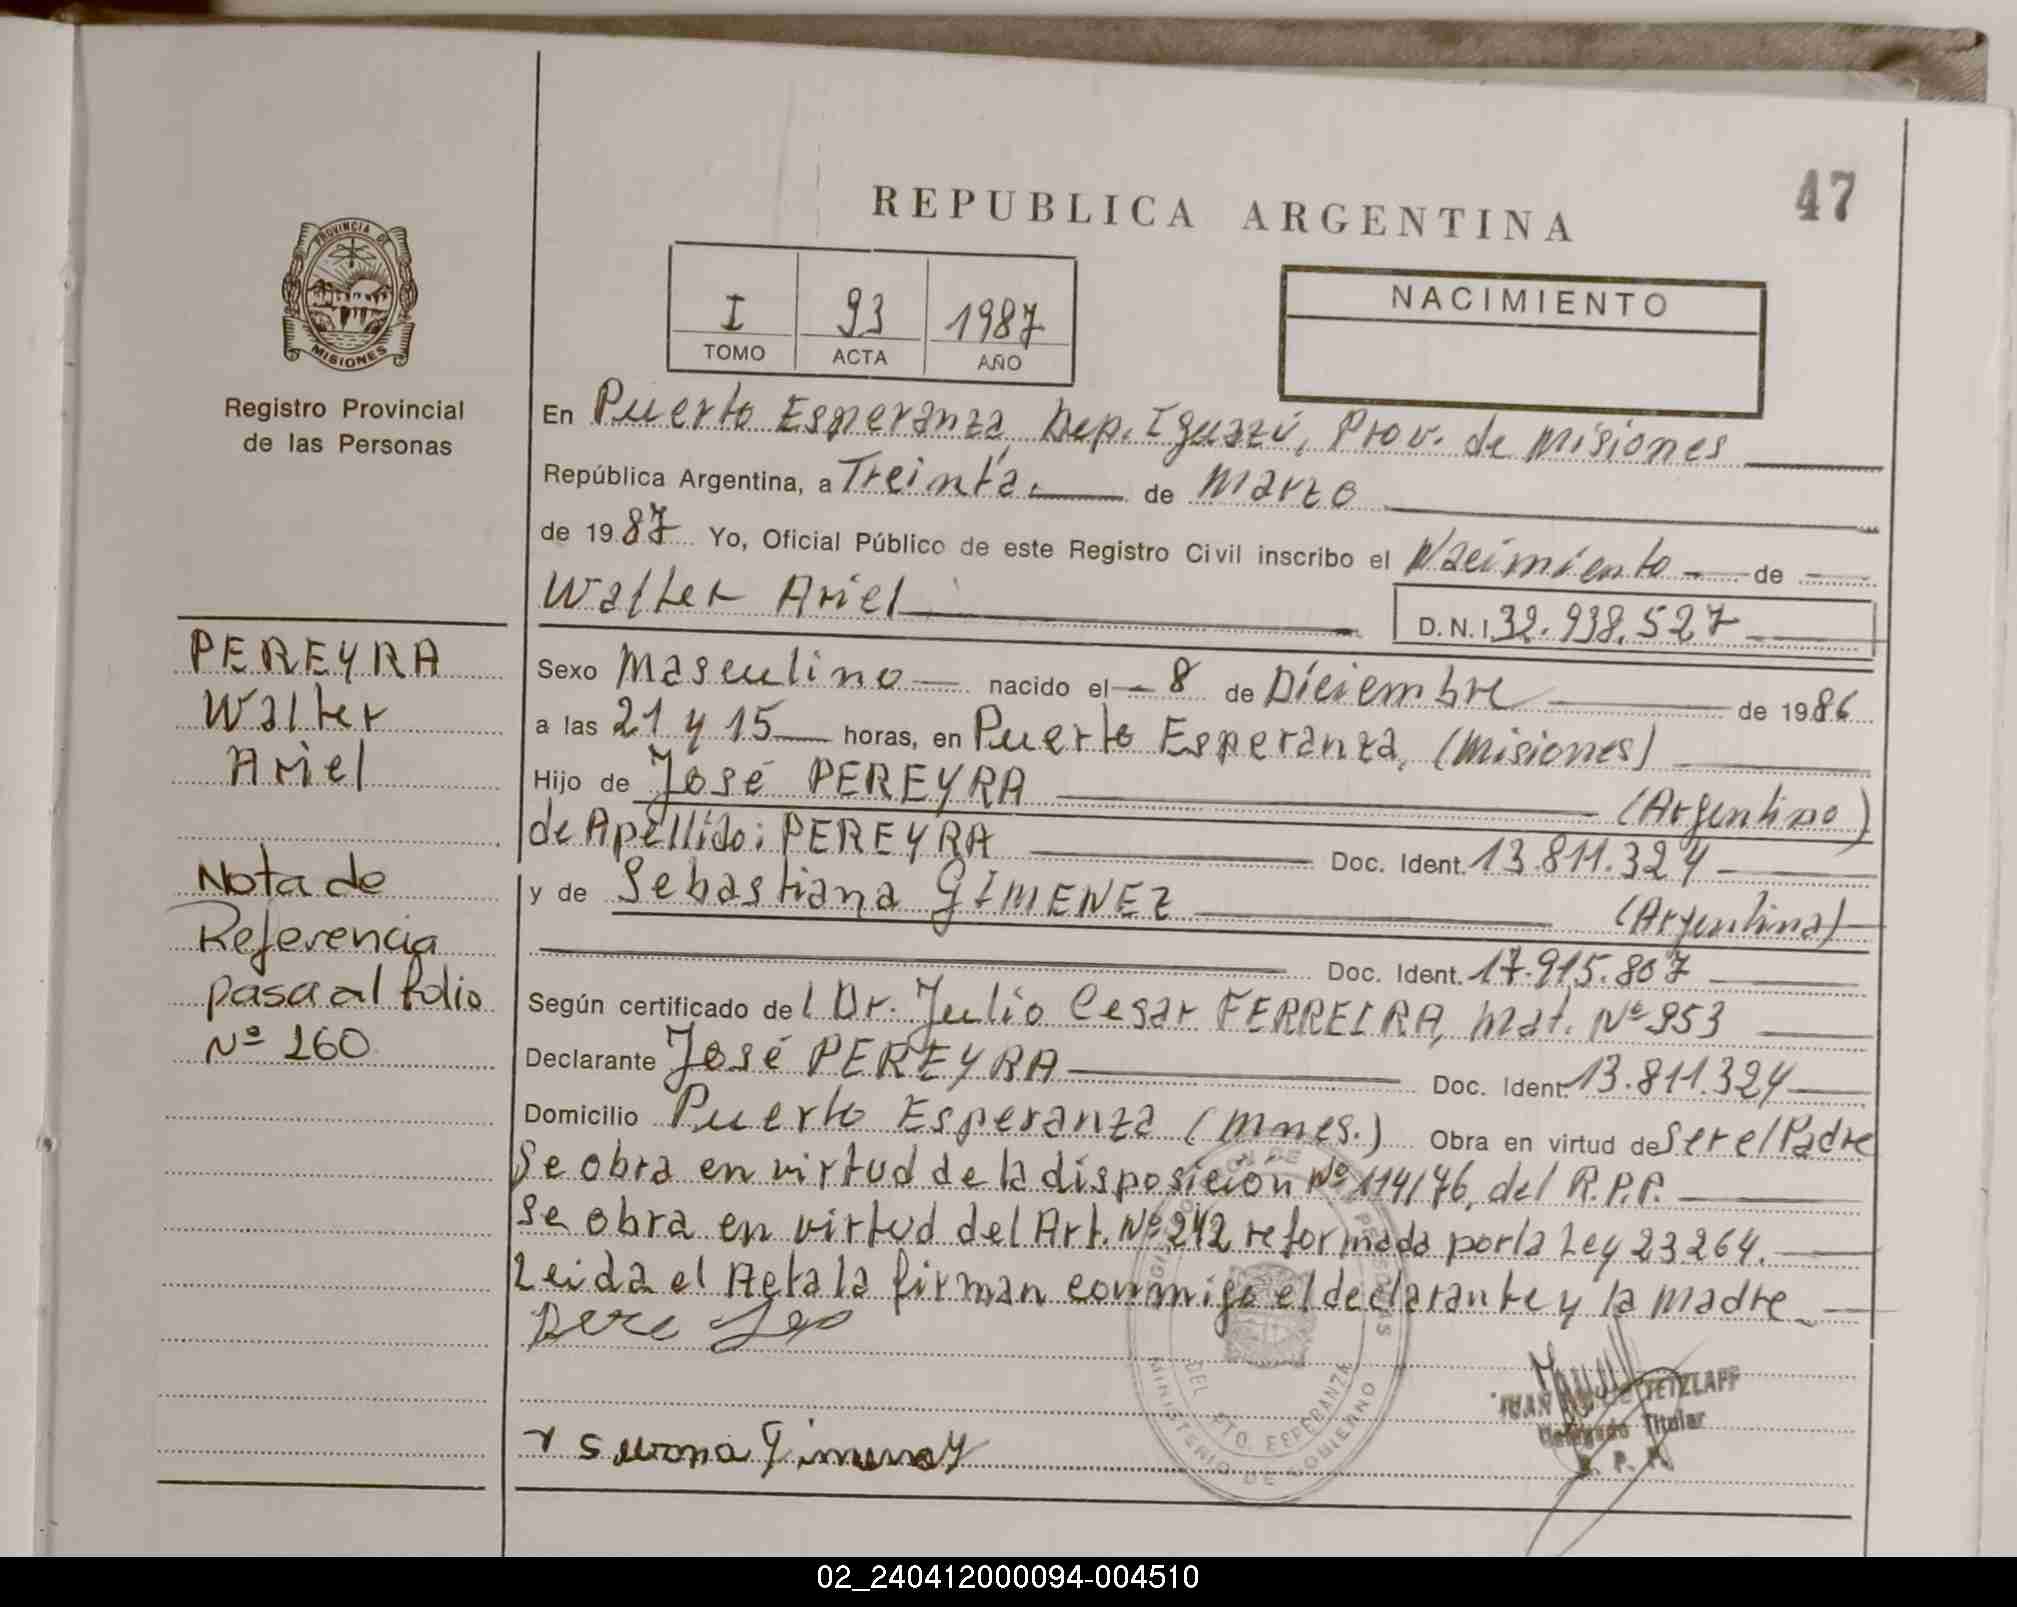 47
REPUBLICA ARGENTINA
PROVINCIA DE
MISIONES
Registro Provincial
de las Personas
I 93 1987
TOMO ACTA AÑO
NACIMIENTO
En Puerto Esperanza, Dep. Iguazú, Prov. de Misiones
República Argentina, a Treinta. de Marzo
de 1987 Yo, Oficial Público de este Registro Civil inscribo el Nacimiento de
Walter Ariel
D.N.I 32.938.527
Sexo Masculino nacido el 8 de Diciembre de 1986
a las 21 y 15 horas, en Puerto Esperanza, (Misiones)
Hijo de José PEREYRA (Argentino)
de Apellido: PEREYRA Doc. Ident. 13.811.324
y de Sebastiana GIMENEZ (Argentina)
Doc. Ident. 17.915.807
Según certificado del Dr. Julio Cesar FERREIRA, Mat. Nº 953
Declarante José PEREYRA Doc. Ident. 13.811.324
Domicilio Puerto Esperanza (Mnes.) Obra en virtud de Ser el Padre
Se obra en virtud de la disposición Nº 114/76, del R.P.P.
Se obra en virtud del Art. Nº 242 reformada por la Ley 23264.
Leida el Acta la firman conmigo el declarante y la madre
PEREYRA
Walter
Ariel
Nota de
Referencia
pasa al folio
Nº 160
DEL PTO. ESPERANZA
MINISTERIO DE GOBIERNO
JUAN TETZLAFF
Delegado Titular
R. P. P.
02_240412000094-004510